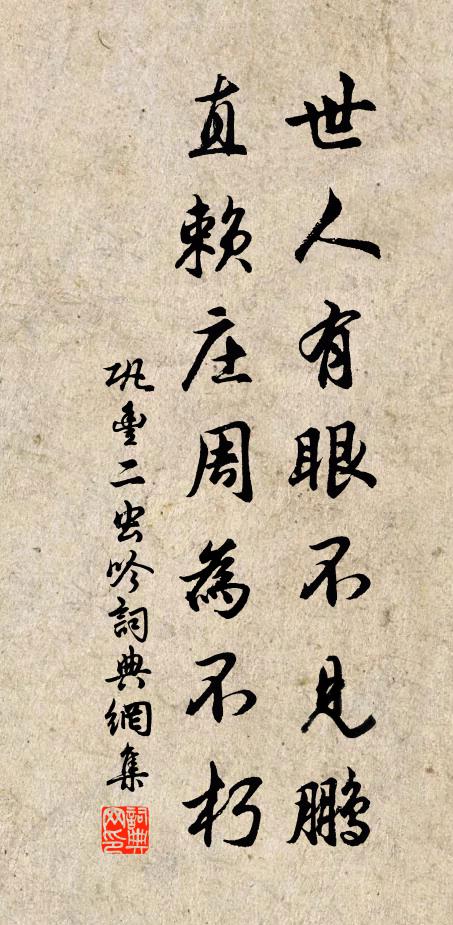 世人有眼不見鵬
直賴庄周為不朽
巩豐二虫吟詞典網集
詞典網印